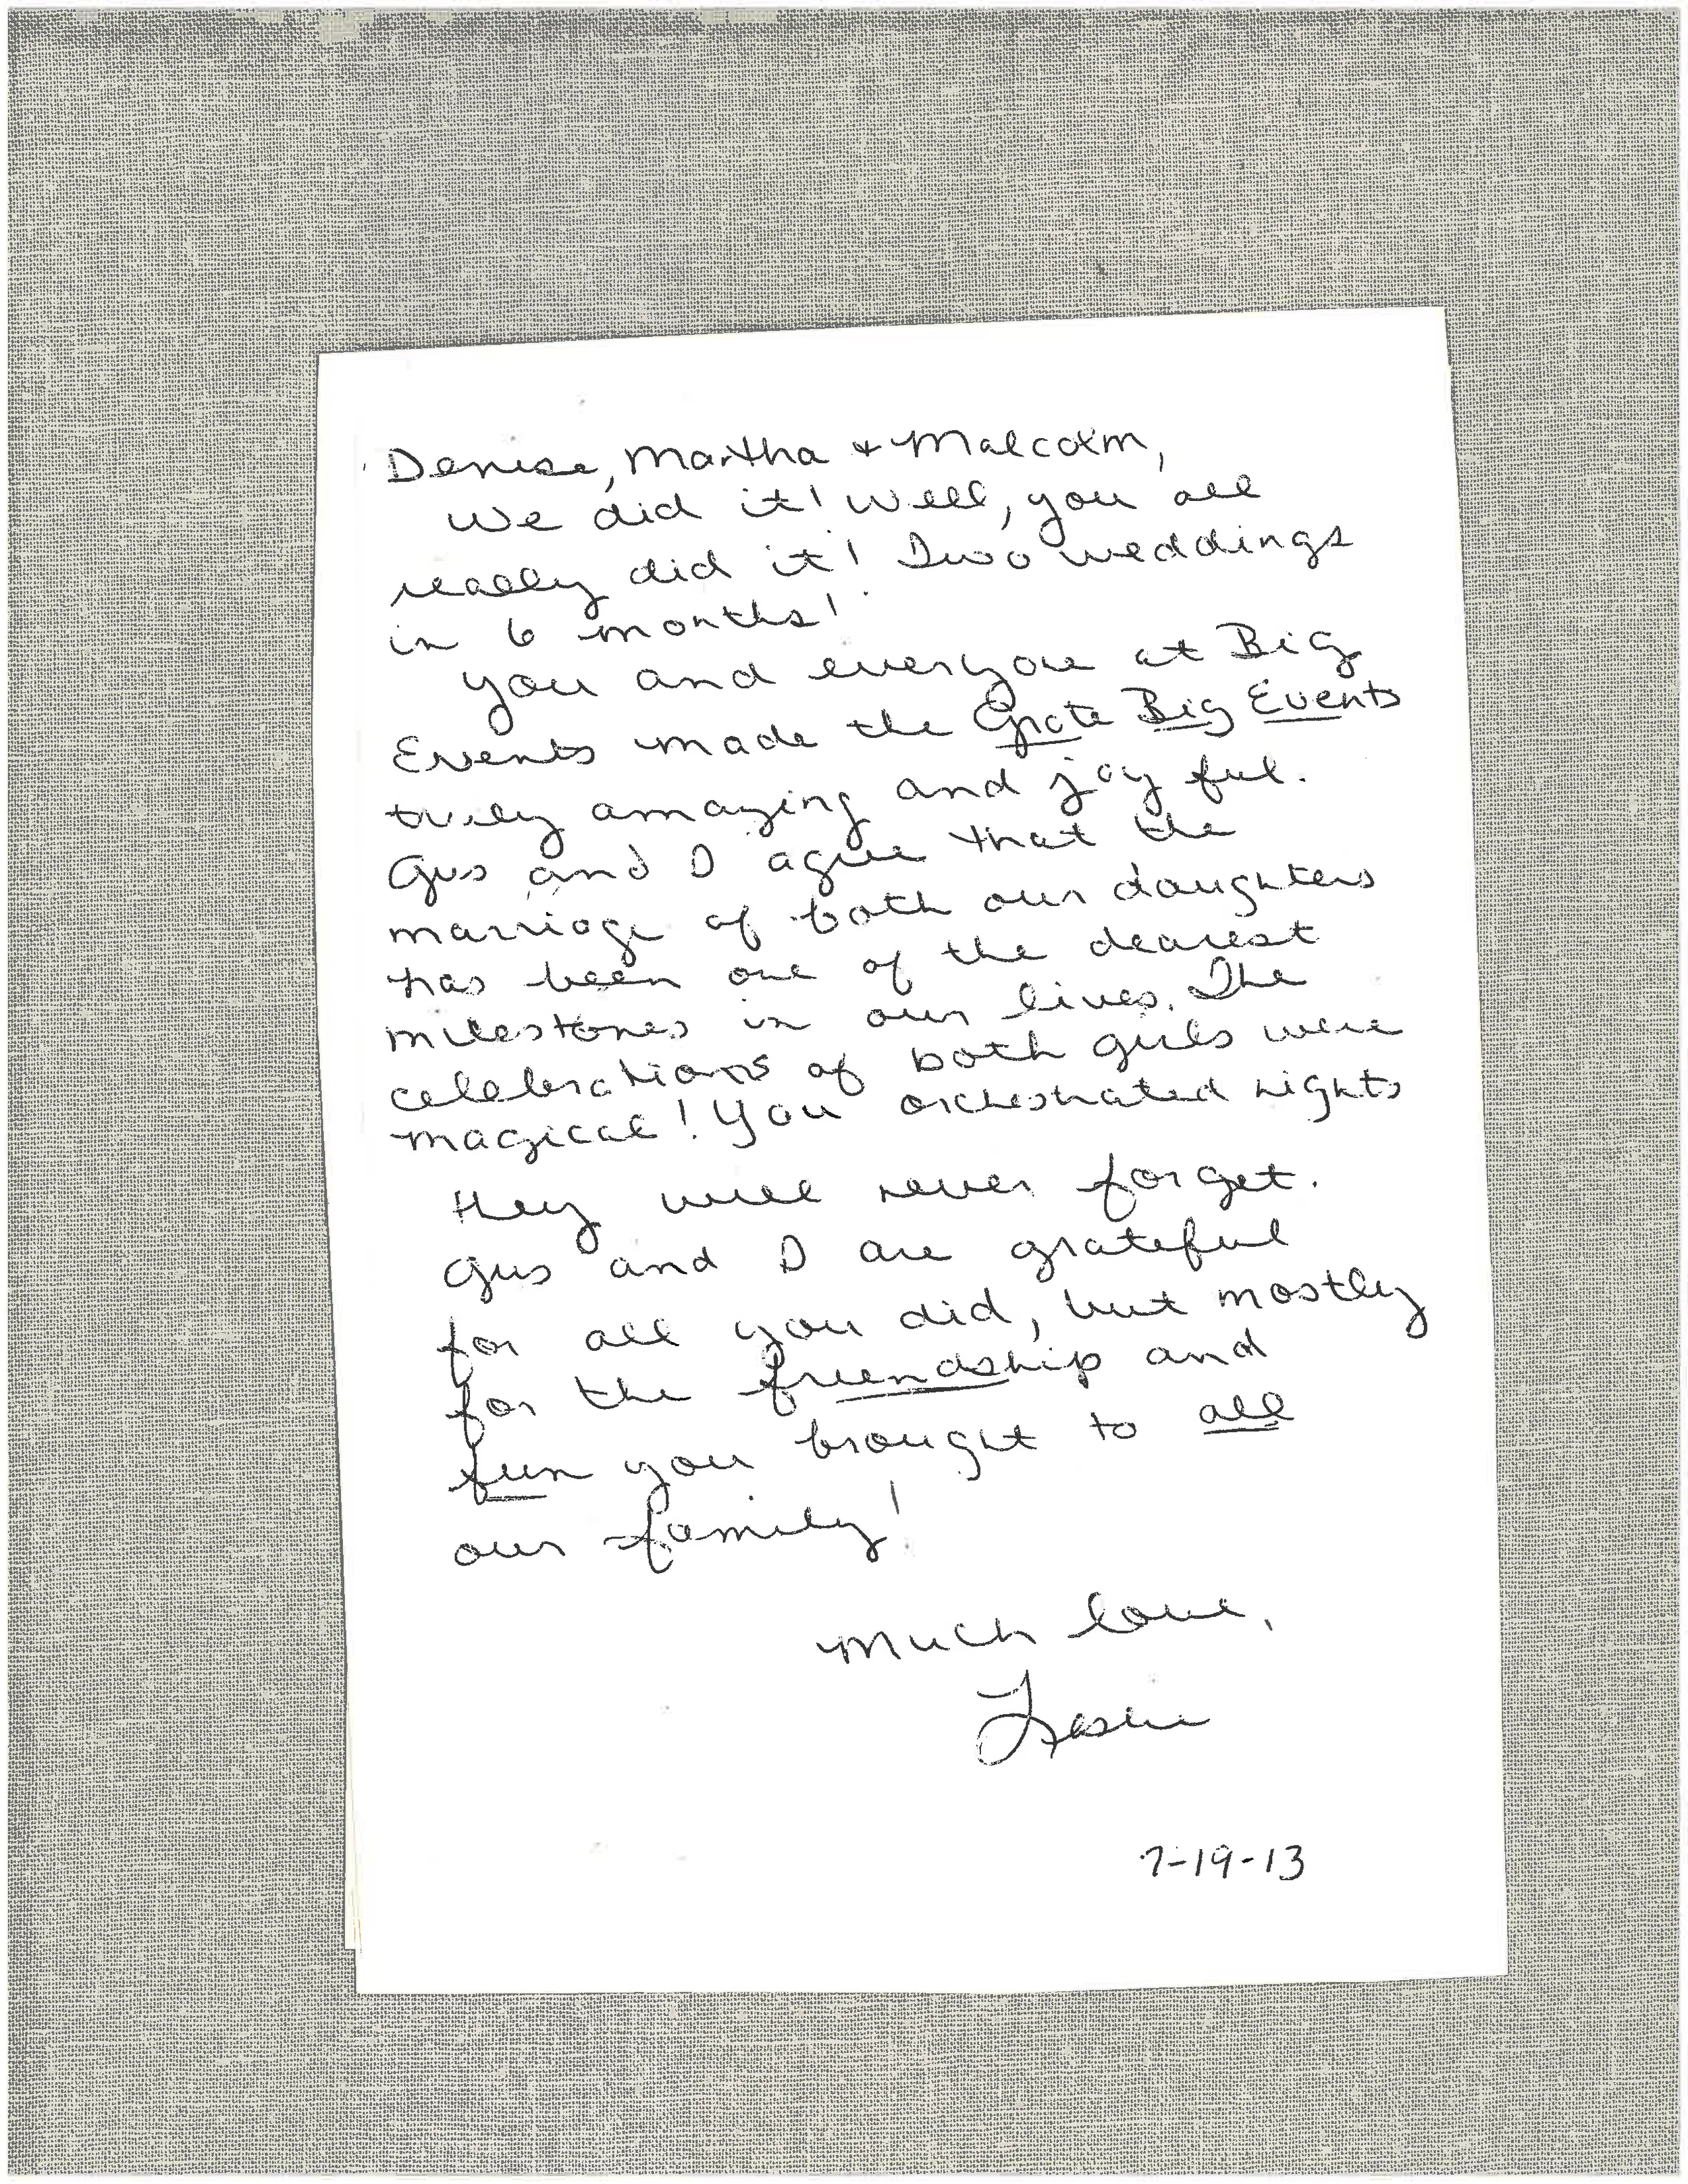 Denise, Martha + Malcolm,
We did it! Well, you all
really did it! Two weddings
in 6 months!
You and everyone at Big
Events made the Grote Big Events
truly amazing and joyful.
Gus and I agree that the
marriage of both our daughters
has been one of the dearest
milestones in our lives. The
celebrations of both girls were
magical! You orchestrated nights
they will never forget.
Gus and I are grateful
for all you did, but mostly
for the friendship and
fun you brought to all
our family!
Much love,
Leslie
7-19-13